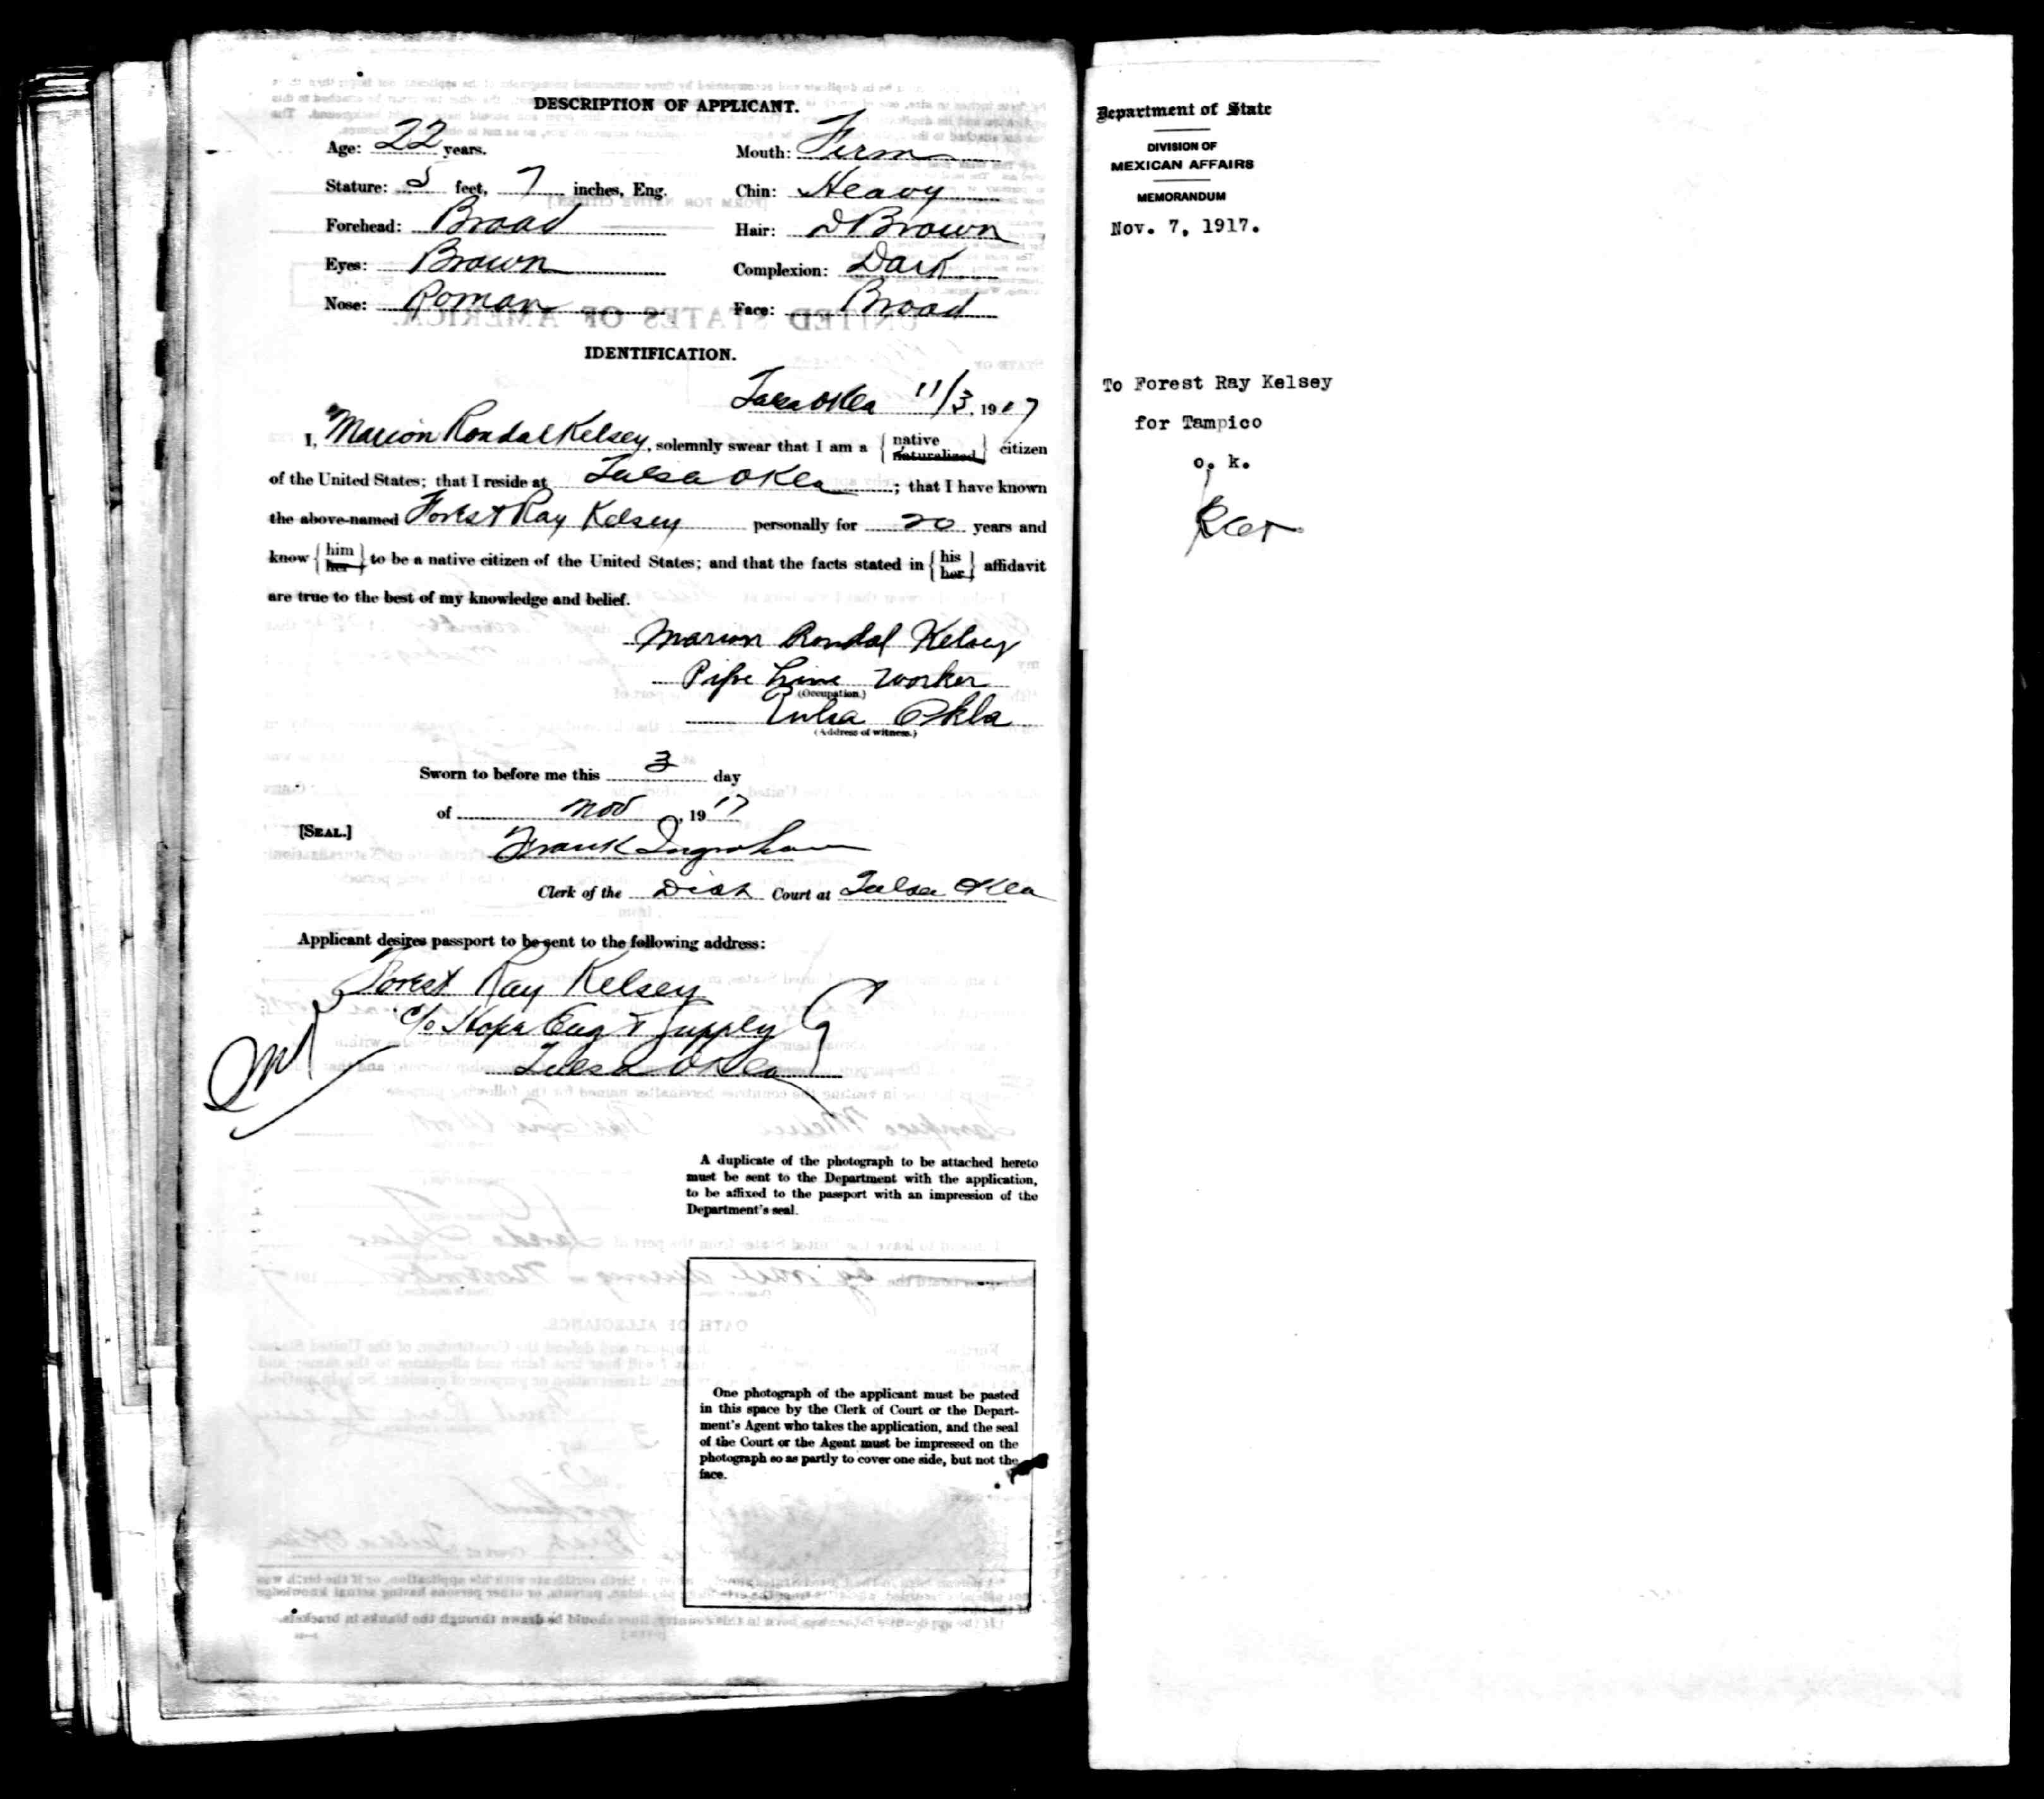 DESCRIPTION OF APPLICANT.
Age: 22 years.
Mouth: Firm
Stature: 5 feet, 7 inches, Eng.
Chin: Heavy
Forehead: Broad
Hair: D Brown
Eyes: Brown
Complexion: Dark
Nose: Roman
Face: Broad
IDENTIFICATION.
Tulsa Okla 11/3, 1917
I, Marion Randal Kelsey, solemnly swear that I am a { native naturalized } citizen
of the United States; that I reside at Tulsa Okla; that I have known
the above-named Forest Ray Kelsey personally for 20 years and
know { him her } to be a native citizen of the United States; and that the facts stated in { his her } affidavit
are true to the best of my knowledge and belief.
Marion Randal Kelsey
Pipe Line Worker
(Occupation.)
Tulsa Okla
(Address of witness.)
Sworn to before me this 3 day
of Nov, 1917
[SEAL.]
Frank Ingraham
Clerk of the Dist Court at Tulsa Okla
Applicant desires passport to be sent to the following address:
Forest Ray Kelsey
c/o Hope Eng & Supply Co
Tulsa Okla
A duplicate of the photograph to be attached hereto
must be sent to the Department with the application,
to be affixed to the passport with an impression of the
Department's seal.
One photograph of the applicant must be pasted
in this space by the Clerk of Court or the Depart-
ment's Agent who takes the application, and the seal
of the Court or the Agent must be impressed on the
photograph so as partly to cover one side, but not the
face.
Department of State
DIVISION OF
MEXICAN AFFAIRS
MEMORANDUM
Nov. 7, 1917.
To Forest Ray Kelsey
for Tampico
o. k.